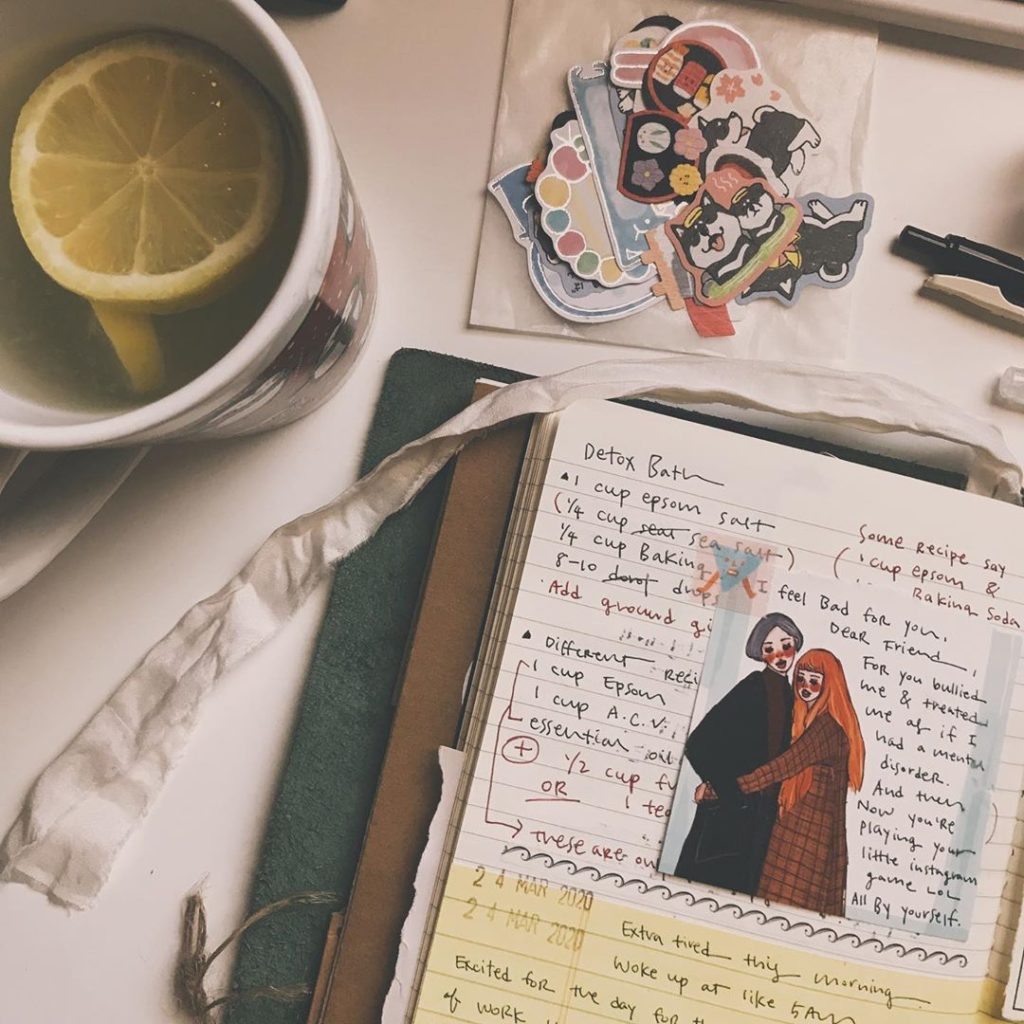 Detox Bath
▲ 1 cup epsom salt
(1/4 cup seat sea salt)
1/4 cup Baking
8-10 drops
Add ground gi
Some recipe say
( 1 cup epsom &
Baking Soda
▲ Different reci
1 cup Epsom
1 cup A.C.V.
essential oil
+ 1/2 cup fu
OR 1 tea
These are on
I feel Bad for you,
Dear Friend,
For you bullied
me & treated
me as if I
had a mental
disorder.
And then
Now you're
playing your
little instagram
game LOL
All By yourself.
2 4 MAR 2020
2 4 MAR 2020
Extra tired this morning.
Woke up at like 5AM
Excited for the day for the
of work